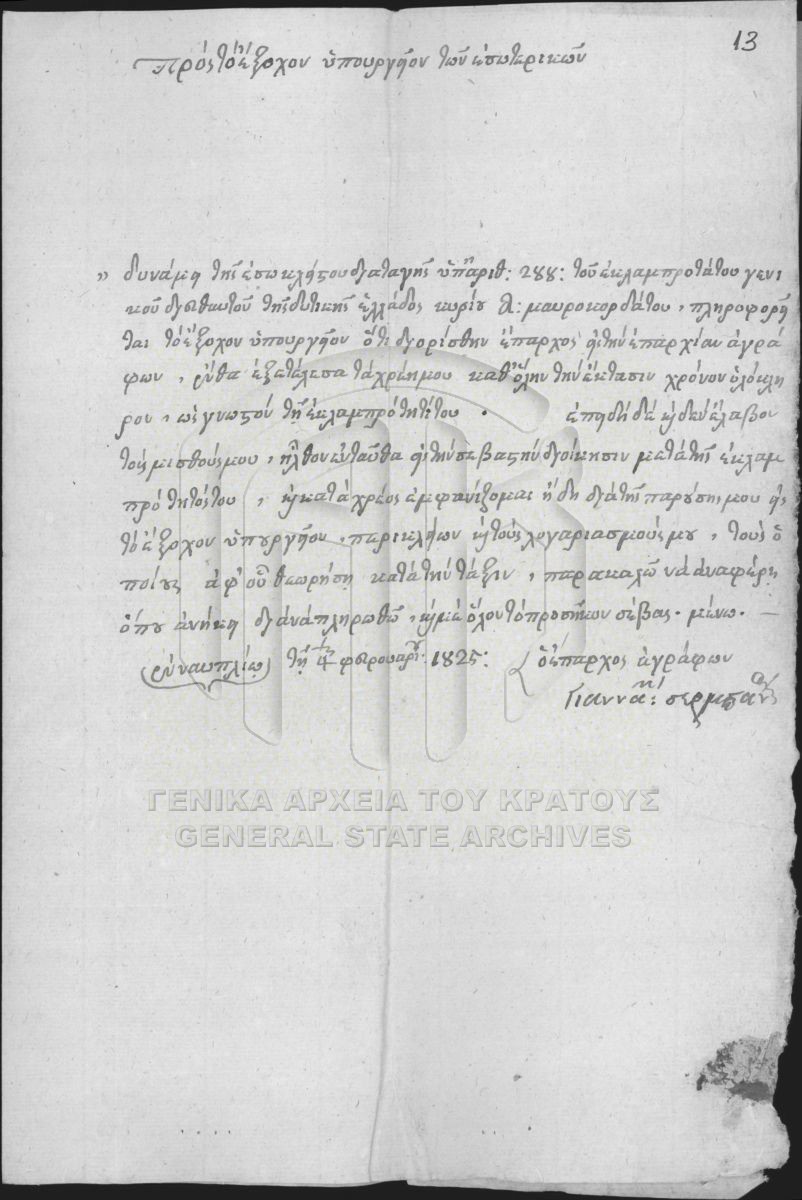 13
πρὸς τὸ ἔξοχον ὑπουργεῖον τῶν ἐσωτερικῶν
„ δυνάμει τῆς ἐσωκλήστου διαταγῆς ὑπ' ἀριθ: 288: τοῦ ἐκλαμπροτάτου γενι
κοῦ διευθυντοῦ τῆς δυτικῆς ἑλλάδος κυρίου Α: μαυροκορδάτου, πληροφορεῖ
ται τὸ ἔξοχον ὑπουργεῖον ὅτι διορίσθην ἔπαρχος εἰς τὴν ἐπαρχίαν ἀγρά
φων, ἔνθα ἐξετέλεσα τὰ χρέη μου καθ' ὅλην τὴν ἔκτασιν χρόνον ὁλόκλη
ρον, ὡς γνωστὸν τῇ ἐκλαμπρότητί του. ἐπειδὴ δὲ καὶ δὲν ἔλαβον
τοὺς μισθούς μου, ἦλθον ἐνταῦθα εἰς τὴν σεβαστὴν διοίκησιν μετὰ τῆς ἐκλαμ
πρότητός του, καὶ κατὰ χρέος ἐμφανίζομαι ἤδη διὰ τῆς παρούσης μου εἰς
τὸ ἔξοχον ὑπουργεῖον, περικλείων καὶ τοὺς λογαριασμούς μου, τοὺς ὁ
ποίους ἀφ' οὗ θεωρήσῃ κατὰ τὴν τάξιν, παρακαλῶ νὰ ἀναφέρῃ
ὅπου ἀνήκει διὰ νὰ πληρωθῶ, καὶ μὲ ὅλον τὸ προσῆκον σέβας. μένω. —
ἐν ναυπλίῳ τῇ φεβρουαρί: 1825: ὁ ἔπαρχος ἀγράφων
Γιαννά:
ΓΕΝΙΚΑ ΑΡΧΕΙΑ ΤΟΥ ΚΡΑΤΟΥΣ
GENERAL STATE ARCHIVES